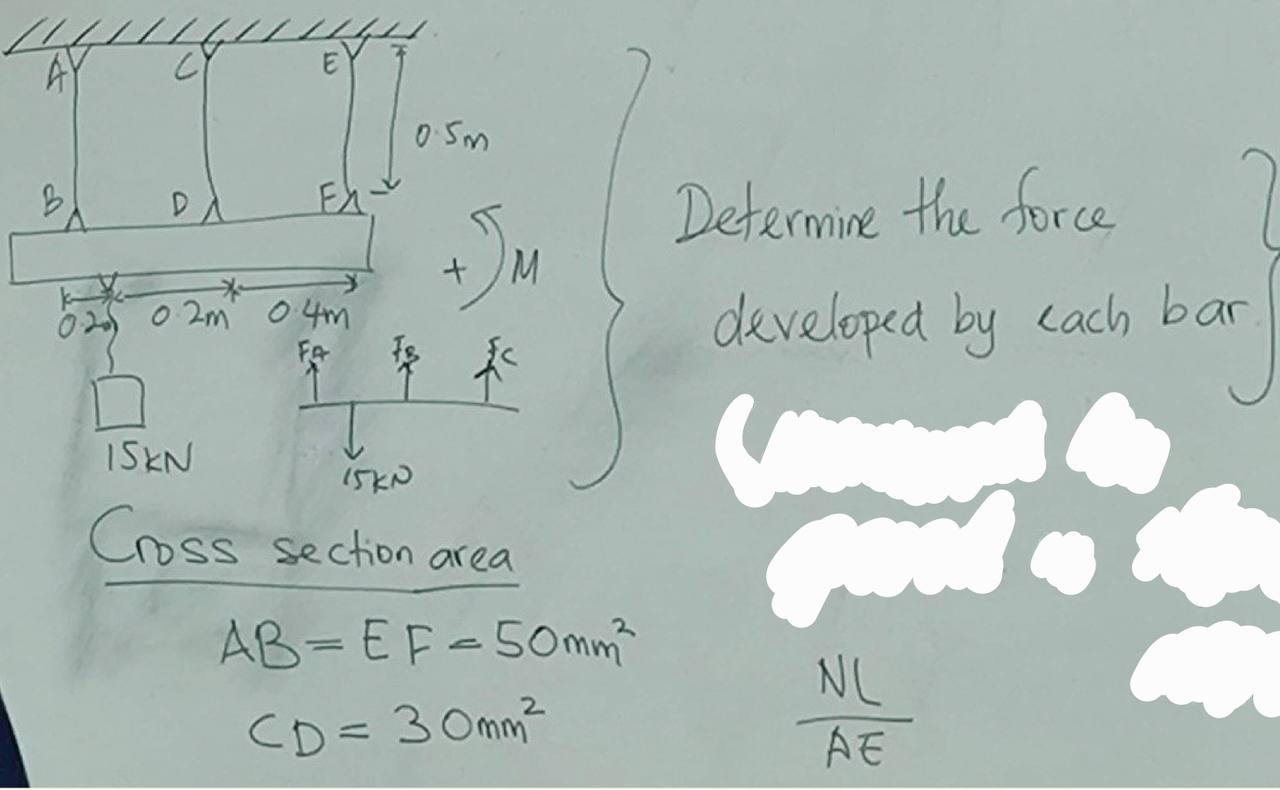 A C E
0.5m
B D F
+ M
0.20 0.2m 0.4m
FA FB FC
15kN
15KN
Determine the force
developed by each bar
Cross section area
AB = EF = 50mm²
CD = 30mm²
NL
AE